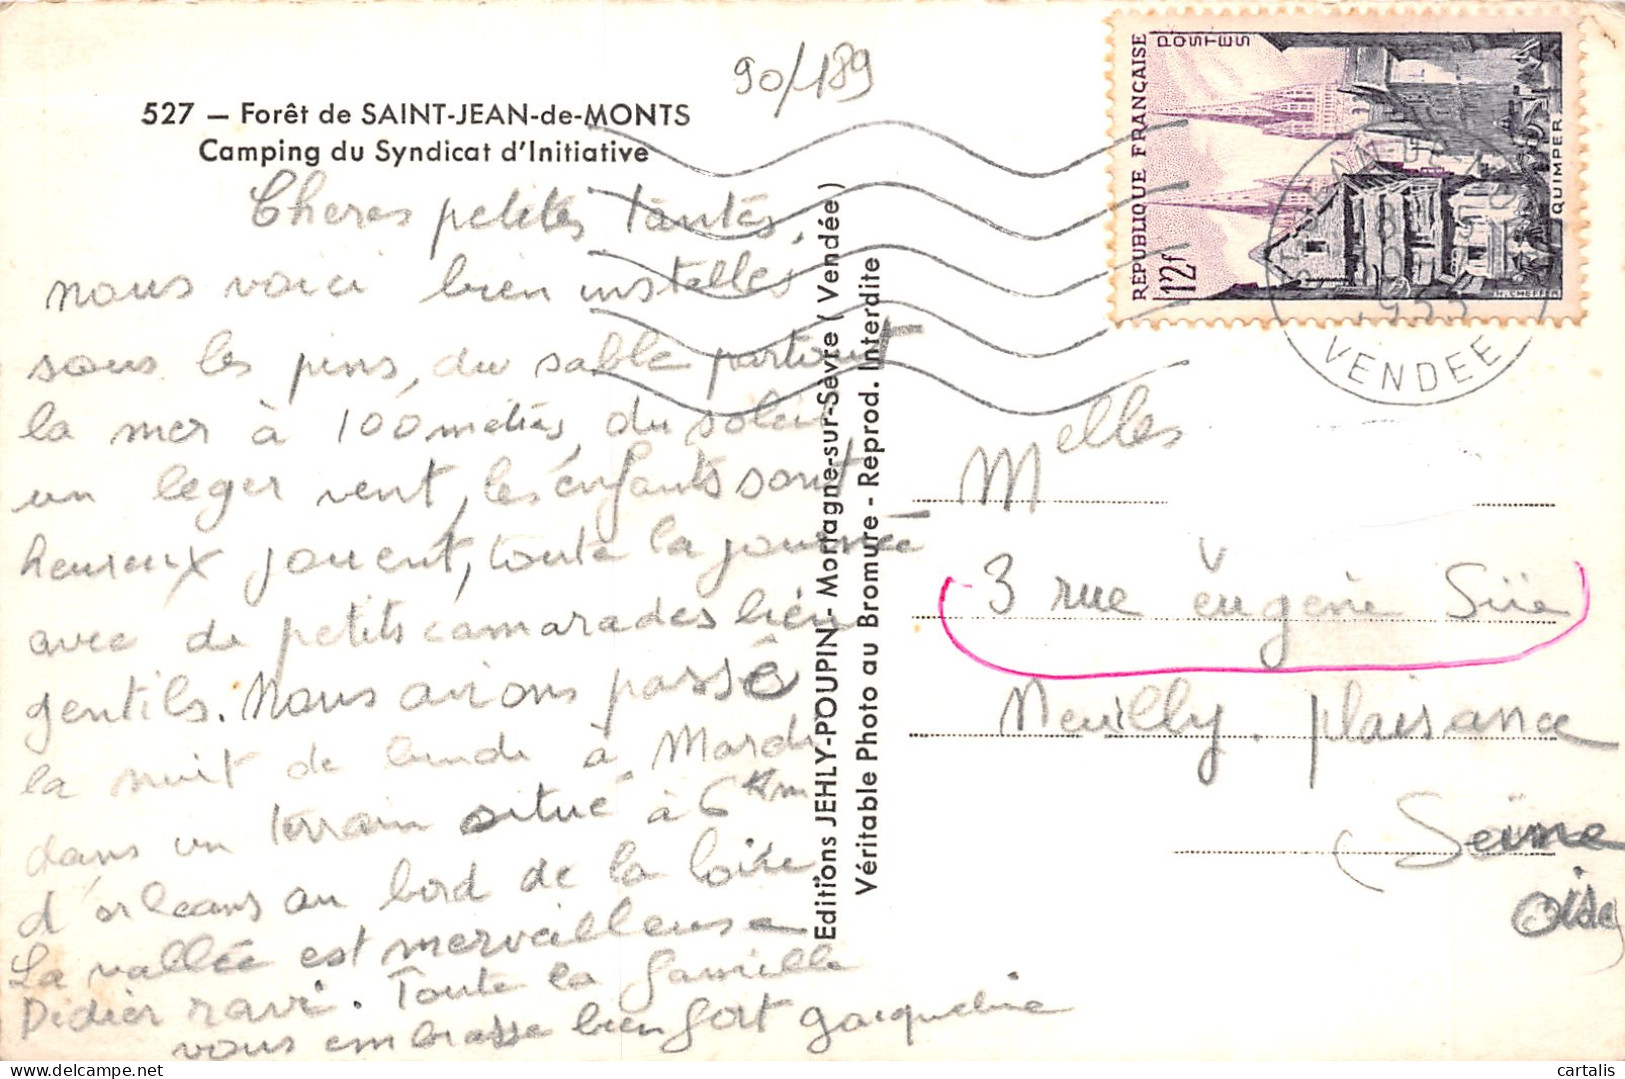 90/189
527 — Forêt de SAINT-JEAN-de-MONTS
Camping du Syndicat d'Initiative
Cheres petites tantes,
nous voici bien installes
sous les pins, du sable partout
la mer à 100 mètres, du soleil
un leger vent, les enfants sont
heureux jouent, toute la journée
avec de petits camarades bien
gentils. Nous avions passé
la nuit de lundi à Mardi
dans un terrain situé à 6 km
d'orleans au bord de la loire
La vallée est merveilleuse
Didier ravi. Toute la famille
vous embrasse bien fort Jacqueline
Editions JEHLY-POUPIN - Mortagne-sur-Sèvre ( Vendée )
Véritable Photo au Bromure - Reprod. Interdite
REPUBLIQUE FRANÇAISE
POSTES
12f
QUIMPER
1955
VENDEE
Melles
3 rue eugène Süe
Neuilly. plaisance
(Seine
oise)
cartalis